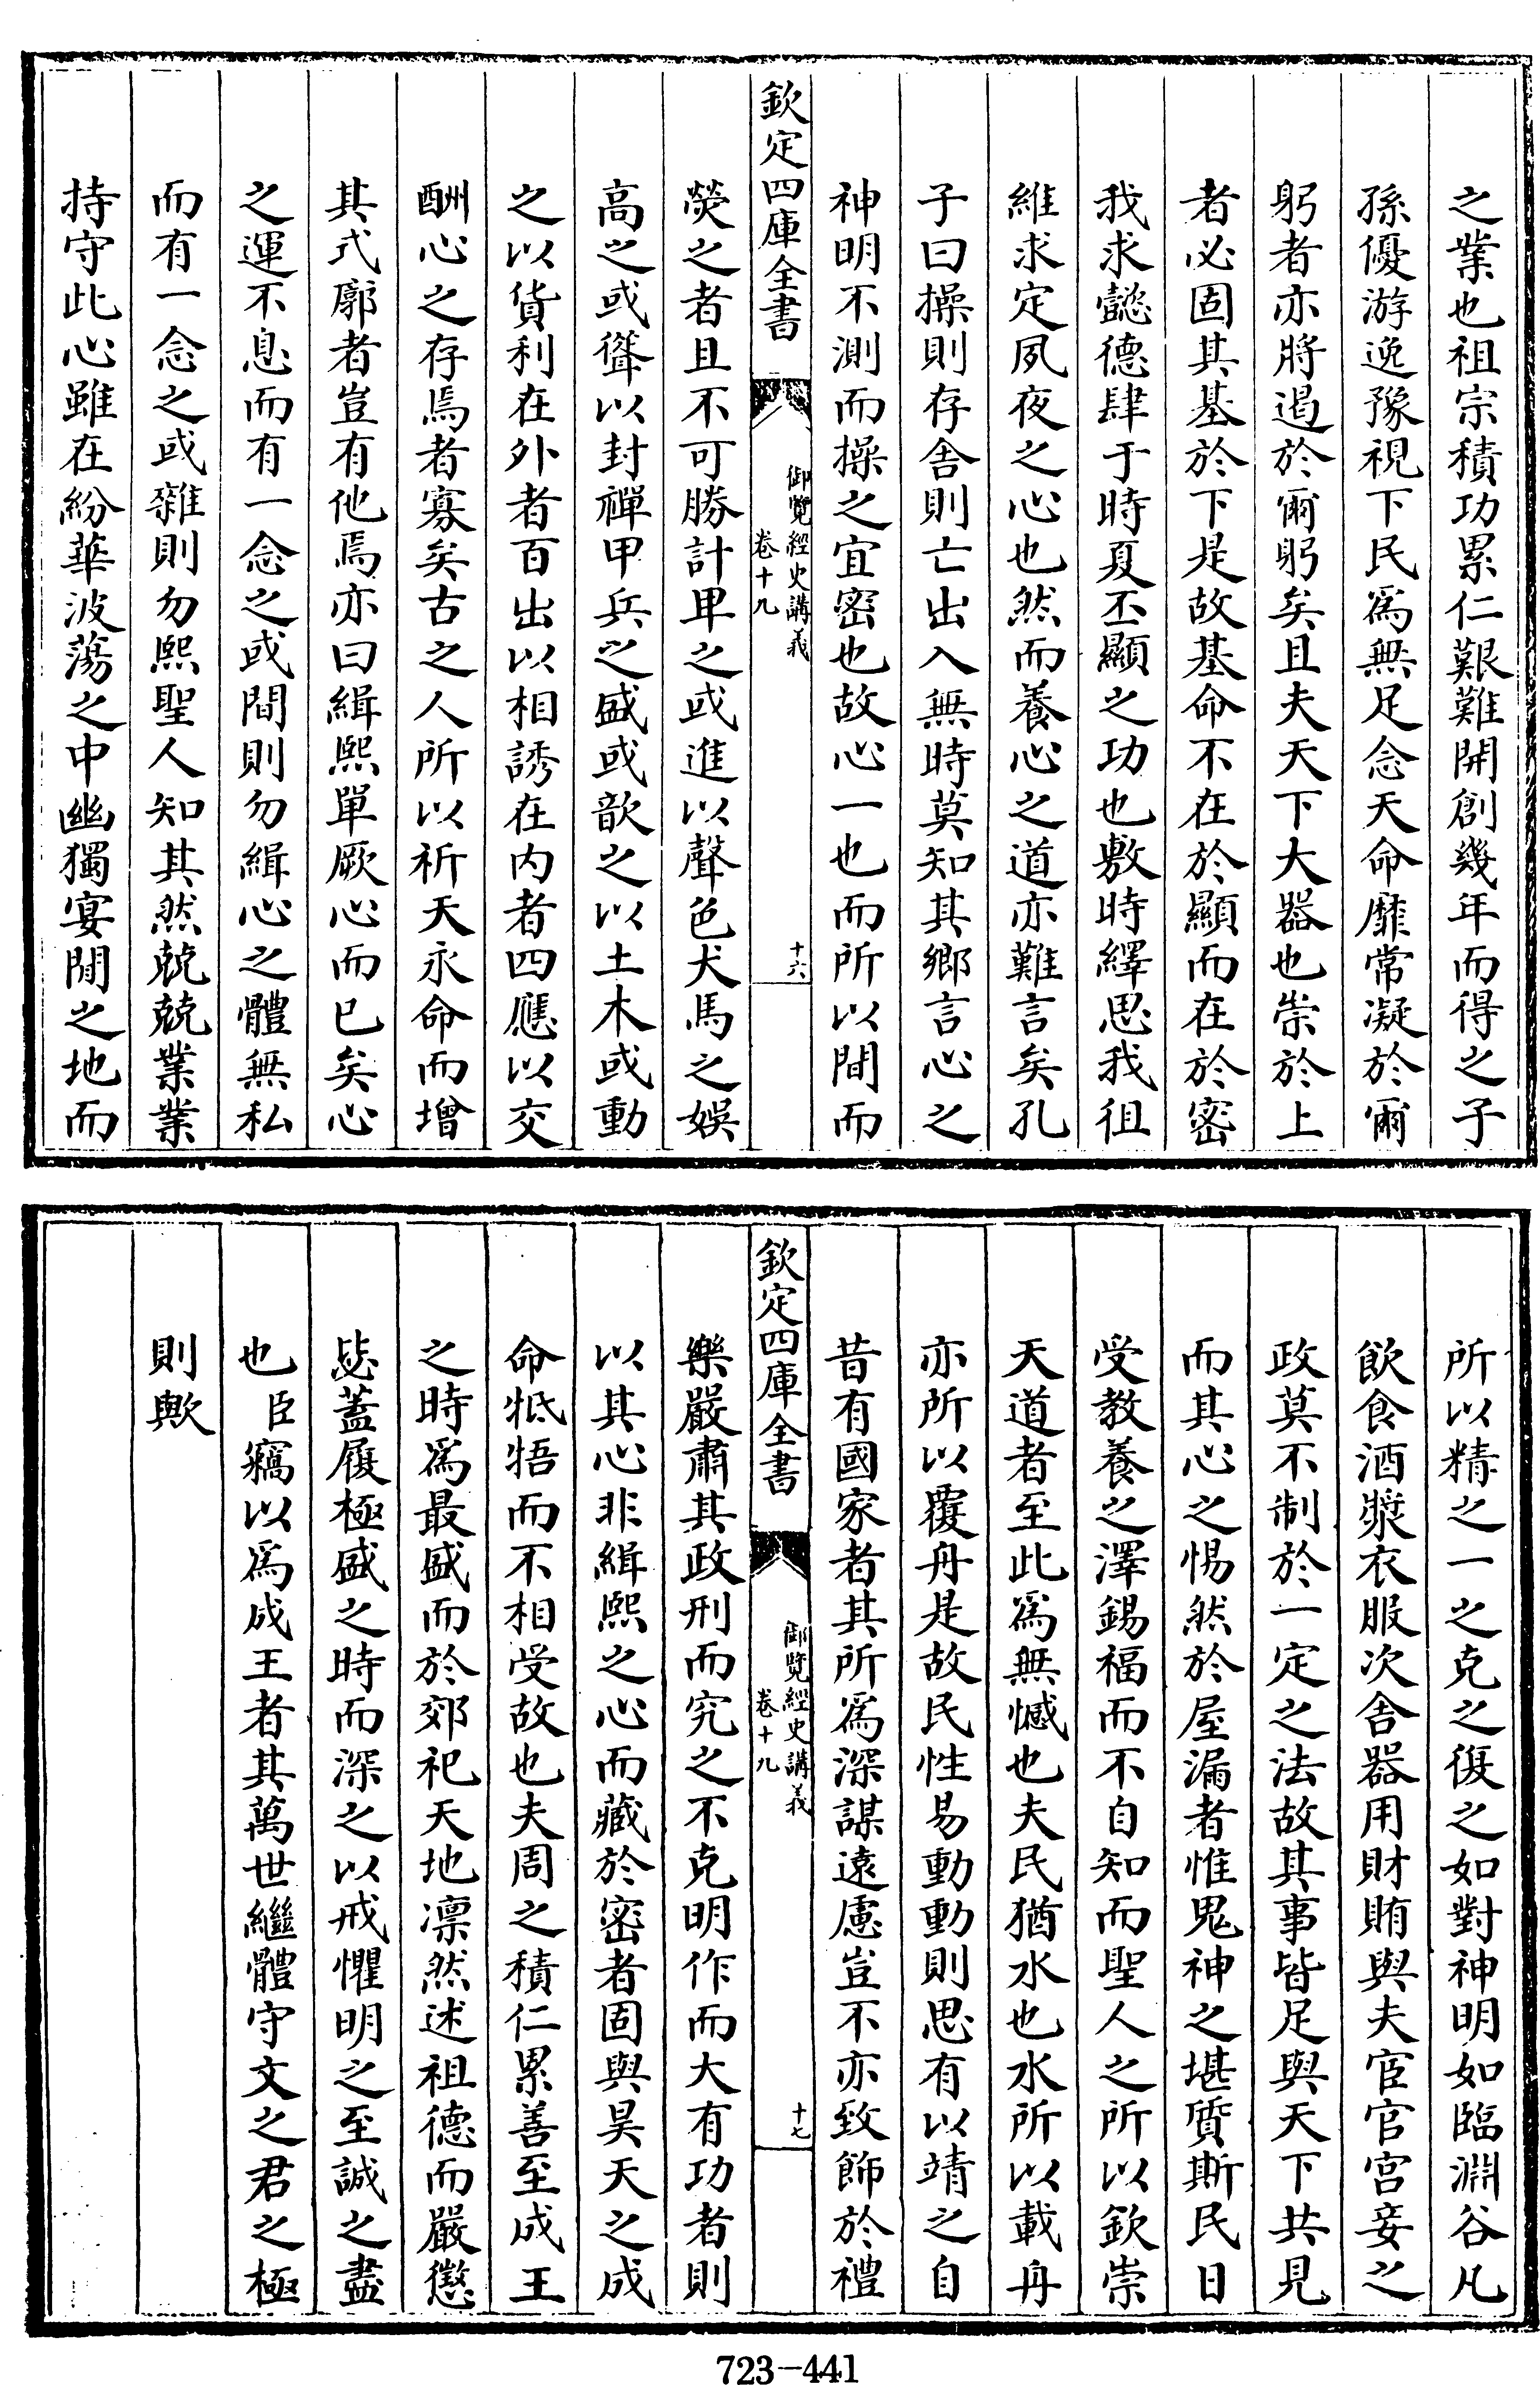 之業也祖宗積功累仁艱難開創幾年而得之子
孫優游逸豫視下民爲無足念天命靡常凝於爾
躬者亦將遏於爾躬矣且夫天下大器也崇於上
者必固其基於下是故基命不在於顯而在於密
我求懿德肆于時夏丕顯之功也敷時繹思我徂
維求定夙夜之心也然而養心之道亦難言矣孔
子曰操則存舍則亡出入無時莫知其鄉言心之
神明不測而操之宜密也故心一也而所以間而
欽定四庫全書
御覽經史講義
卷十九
十六
熒之者且不可勝計卑之或進以聲色犬馬之娛
高之或聳以封禪甲兵之盛或歆之以土木或動
之以貨利在外者百出以相誘在内者四應以交
酬心之存焉者寡矣古之人所以祈天永命而增
其式廓者豈有他焉亦曰緝熙單厥心而已矣心
之運不息而有一念之或間則勿緝心之體無私
而有一念之或雜則勿熙聖人知其然兢兢業業
持守此心雖在紛華波蕩之中幽獨宴閒之地而
所以精之一之克之復之如對神明如臨淵谷凡
飲食酒漿衣服次舍器用財賄與夫宦官宫妾之
政莫不制於一定之法故其事皆足與天下共見
而其心之惕然於屋漏者惟鬼神之堪質斯民日
受教養之澤錫福而不自知而聖人之所以欽崇
天道者至此爲無憾也夫民猶水也水所以載舟
亦所以覆舟是故民性易動動則思有以靖之自
昔有國家者其所爲深謀遠慮豈不亦致飾於禮
欽定四庫全書
御覽經史講義
卷十九
十七
樂嚴肅其政刑而究之不克明作而大有功者則
以其心非緝熙之心而藏於密者固與昊天之成
命牴牾而不相受故也夫周之積仁累善至成王
之時爲最盛而於郊祀天地凛然述祖德而嚴懲
毖蓋履極盛之時而深之以戒懼明之至誠之盡
也臣竊以爲成王者其萬世繼體守文之君之極
則歟
723-441